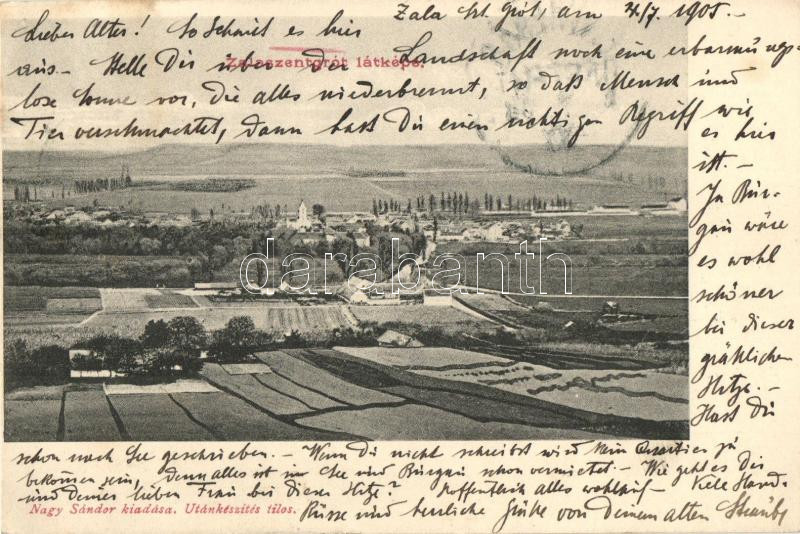 Zala szt. Grót, am 4/7. 1905.-
Lieber Alter! So schaut es hier
aus.- Stelle Dir über der Landschaft noch eine erbarmungs-
Zalaszentgrót látképe.
lose Sonne vor, die alles niederbrennt, so daß Mensch und
Tier verschmachtet, dann hast Du einen richtigen Begriff wie
es hier
ist.-
In Bür-
gau wäre
es wohl
schöner
bei dieser
gräßlichen
Hitze.-
Hast Du
darabanth
schon nach See geschrieben.- Wenn Du nicht schreibst wird kein Quartier zu
bekommen sein, denn alles ist in See und Bürgau schon vermietet.- Wie geht es Dir
und Deiner lieben Frau bei dieser Hitze? Hoffentlich alles wohlauf.- Viele Hand-
Nagy Sándor kiadása. Utánkészítés tilos.
küsse und herzliche Grüße von Deinem alten